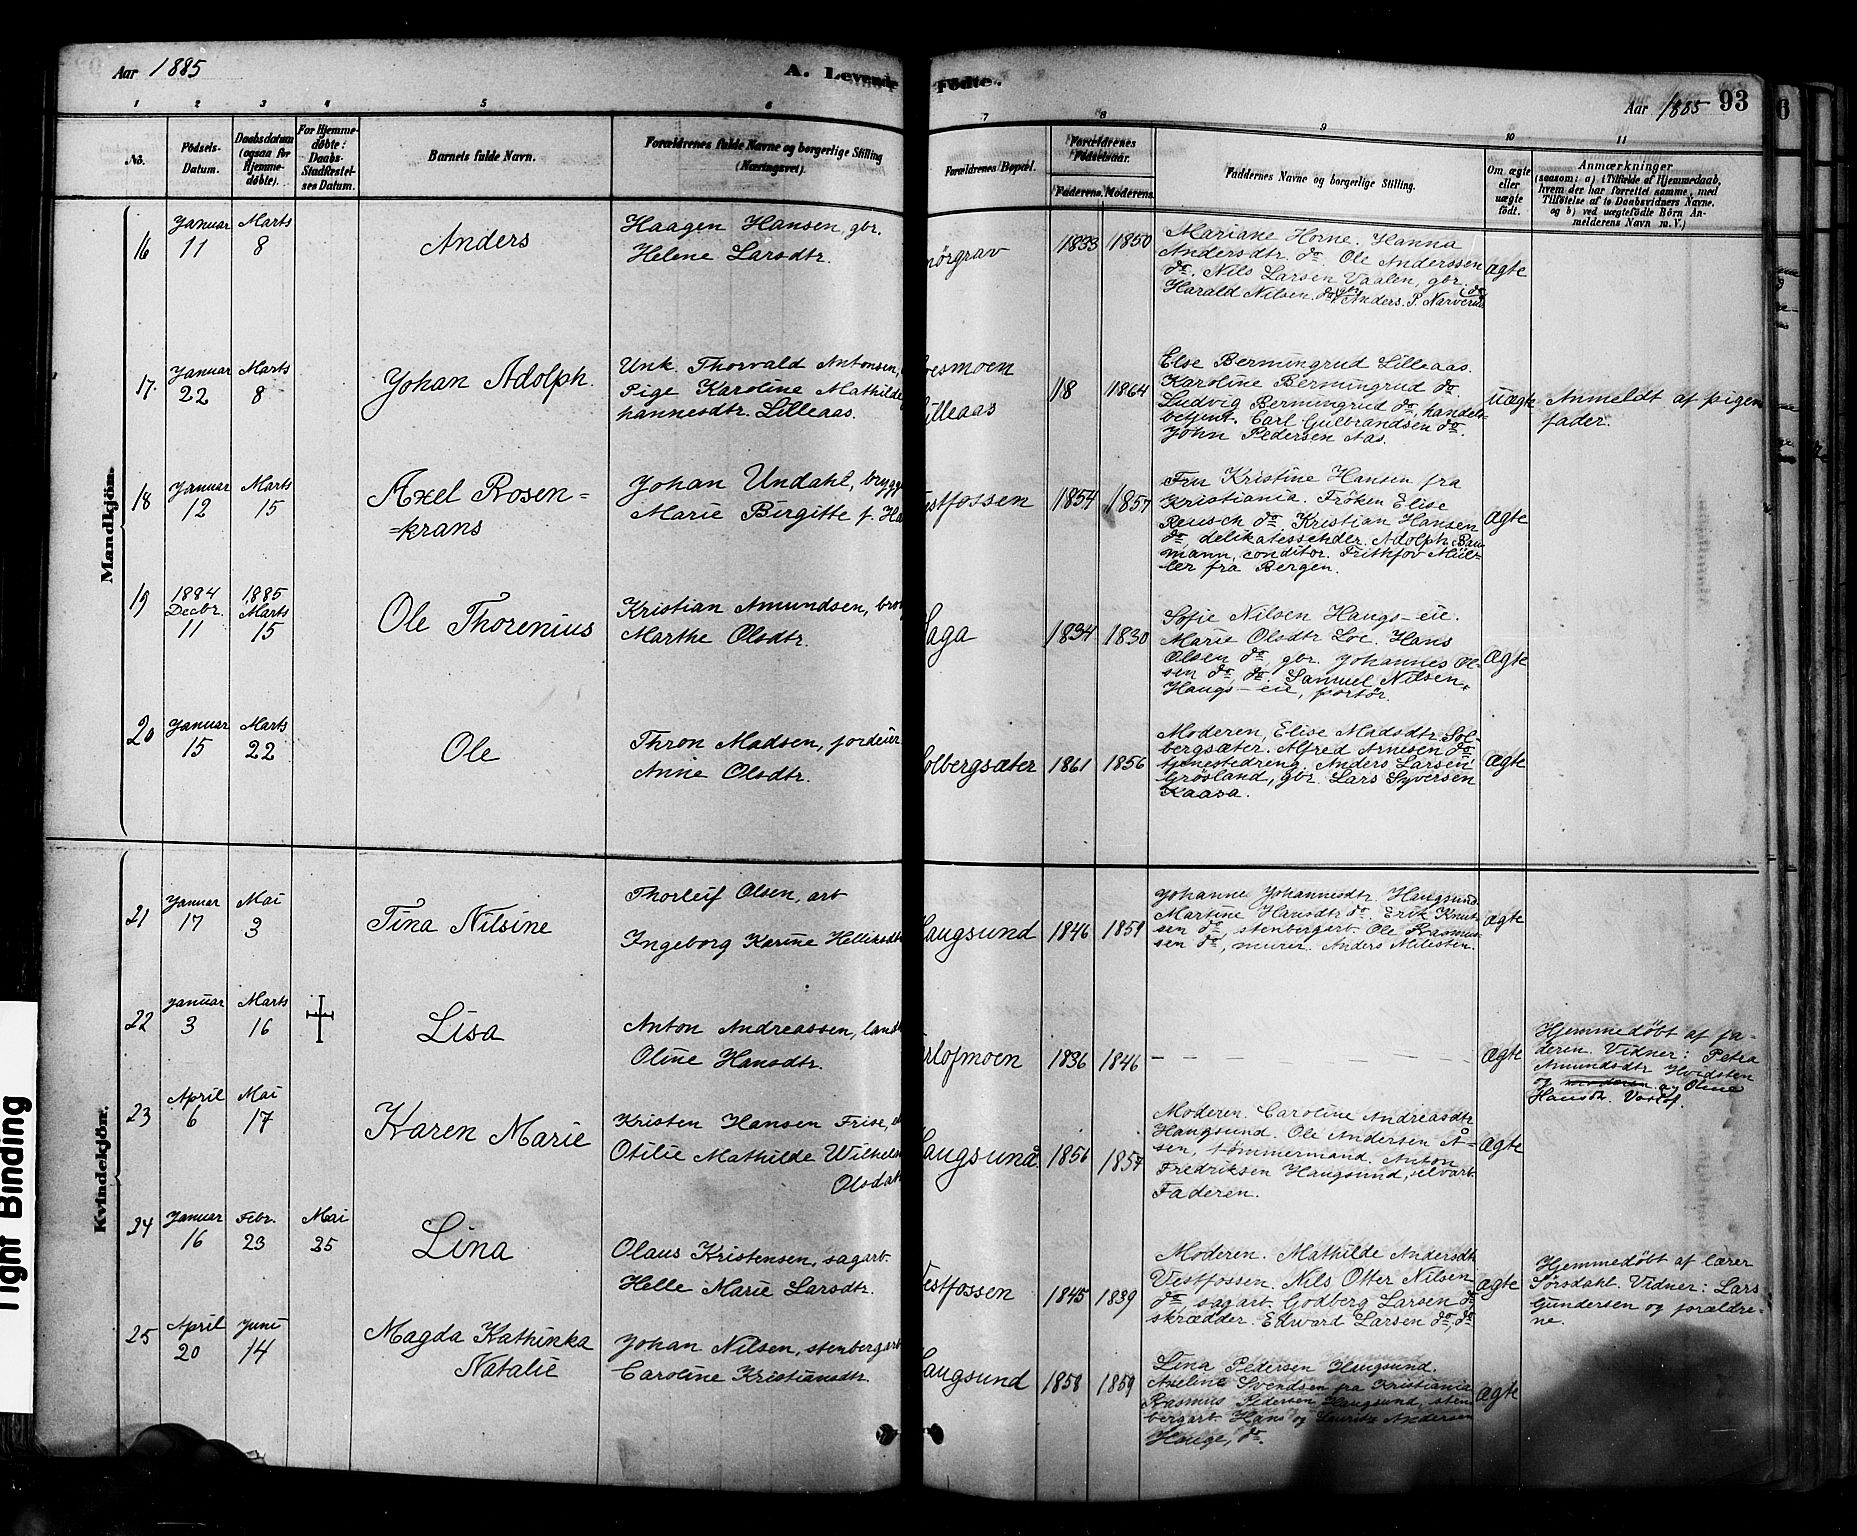 Aar 1885
A. Levende Fødte.
Aar 1885 93
1 2 3 4 5 6 7 8 9 10 11
No.
Fødsels-
Datum.
Daabsdatum
(ogsaa for
Hjemme-
døbte).
For Hjemme-
døbte:
Daabs-
Stadfæstel-
ses Datum.
Barnets fulde Navn.
Forældrenes fulde Navne og borgerlige Stilling
(Næringsvei).
Forældrenes Bopæl.
Forældrenes
Fødselsaar.
Faderens. Moderens.
Faddernes Navne og borgerlige Stilling.
Om ægte
eller
uægte
født.
Anmærkninger
(saasom: a) i Tilfælde af Hjemmedaab,
hvem der har forrettet samme, med
Tilføielse af to Daabsvidners Navne.
og b) ved uægtefødte Børn An-
melderens Navn m. V.)
Mandkjøn.
16
Januar
11
Marts
8
Anders
Haagen Hansen, gbr.
Helene Larsdtr.
nörgrav
1833 1850
Mariane Horne. Hanna
Andersdtr. do Ole Anderssen
do. Nils Larsen Vaalen, gbr.
Harald Nilsen do, gbr. Anders P. Narverud
ægte
17.
Januar
22
Marts
8
Johan Adolph.
Unk. Thorvald Antonsen,
Pige Karoline Mathilde
hannesdtr. Lilleaas.
oesmoen
illeaas
18 1864
Else Bermingrud Lilleaas.
Karoline Bermingrud do
Ludvig Bermingrud do, handels-
betjent. Carl Gulbrandsen do.
John Pedersen Aas.
uægte
Anmeldt af pigen
fader.
18
Januar
12
Marts
15
Axel Rosen=
=krans
Johan Undahl, brygg
Marie Birgitte f. Ha
estfossen
1854 1857
Fru Kristine Hansen fra
Kristiania. Fröken Elise
Reusch do. Kristian Hansen
do, delikatessehdlr. Adolph Bau
mann, conditor. Frithjov Mül-
ler fra Bergen.
Ægte
19
1884
Decbr.
11
1885
Marts
15
Ole Thorenius
Kristian Amundsen, bro
Marthe Olsdtr.
aga
1834 1830
Sofie Nilsen Haugs-eie.
Marie Olsdtr Loe. Hans
Olsen do, gbr. Johannes Ol-
sen do, do. Samuel Nilsen,
Haugs-eie, portör.
Ægte
20
Januar
15
Marts
22
Ole
Thron Madsen, jordeier
Anne Olsdtr.
olbergsæter
1861 1856
Moderen, Elise Madsdtr. Sol-
bergsæter. Alfred Arnesen do
tjenestedreng. Anders Larsen
Grösland, gbr. Lars Syversen
Kaasa.
Ægte
Kvindekjøn.
21
Januar
17
Mai
3
Tina Nilsine
Thorleif Olsen, arb
Ingeborg Karine Helliksdtr
augsund
1846 1859
Johanne Johannesdtr. Haugsund
Martine Hansdtr do. Erik Knut-
sen do, stenbergarb. Ole Rasmus-
sen do, murer. Anders Milesten.
Ægte
22
Januar
3
Marts
16
Lisa
Anton Andreassen, land
Oline Hansdtr.
rlofmoen
1836 1846
ægte
Hjemmedöbt af fa-
deren. Vidner: Petra
Amundsdtr Hvidsten
og moderen og Oline
Hansdtr.
23
April
6
Mai
17
Karen Marie
Kristen Hansen Frise,
Otilie Mathilde Wilhelm
Olsdatt
augsund
1856 1857
Moderen. Caroline Andreasdtr
Haugsund. Ole Andersen Å-
sen, tömmermand. Anton
Fredriksen Haugsund, elvarb.
Faderen.
Ægte
24
Januar
16
Febr.
23
Mai
25
Lina
Olaus Kristensen, sagarb.
Helle Marie Larsdtr.
estfossen
1845 1839
Moderen. Mathilde Andersdtr
Vestfossen. Nils Otter Nilsen
do sagarb. Godberg Larsen do
skrædder. Edvard Larsen do, do
ægte
Hjemmedöbt af lærer
Sörsdahl. Vidner: Lars
Gundersen og forældre-
ne.
25
April
20
Juni
14
Magda Kathinka
Natalie
Johan Nilsen, stenbergarb
Caroline Kristiansdtr.
augsund
1858 1859
Lina Pedersen Haugsund.
Axeline Svendsen fra Kristiania
Rasmus Pedersen Haugsund, sten
bergarb. Hans og Lauritz Andersen
Hauge, do.
Ægte
Tight Binding